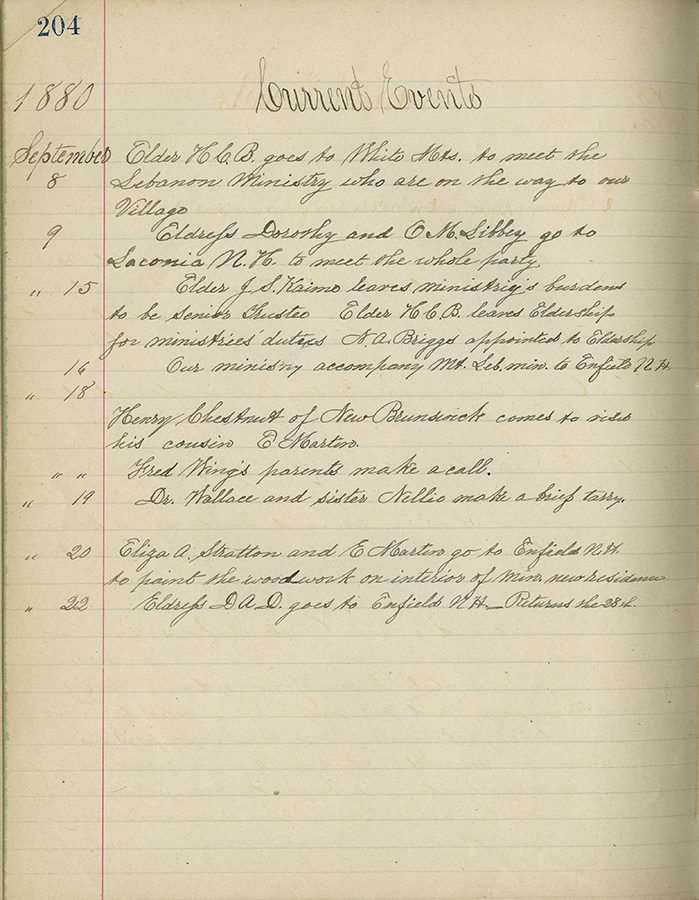 204
1880 Current Events
September Elder H. C. B. goes to White Mts. to meet the
8 Lebanon Ministry who are on the way to our
Village
9 Eldress Dorothy and O. M. Libbey go to
Laconia N. H. to meet the whole party
" 15 Elder J. S. Kaime leaves ministry's burdens
to be senior Trustee Elder H. C. B. leaves Eldership
for ministries' duties N. A. Briggs appointed to Eldership
16 Our ministry accompany Mt. Leb. min. to Enfield N. H.
" 18
Henry Chestnut of New Brunswick comes to visit
his cousin E Martin.
" " Fred Wing's parents make a call.
" 19 Dr. Wallace and sister Nellie make a brief tarry.
" 20 Eliza A. Stratton and E Martin go to Enfield N. H.
to paint the wood work on interior of Min. new residence
" 22 Eldress D. A. D. goes to Enfield N. H_ Returns the 28th.